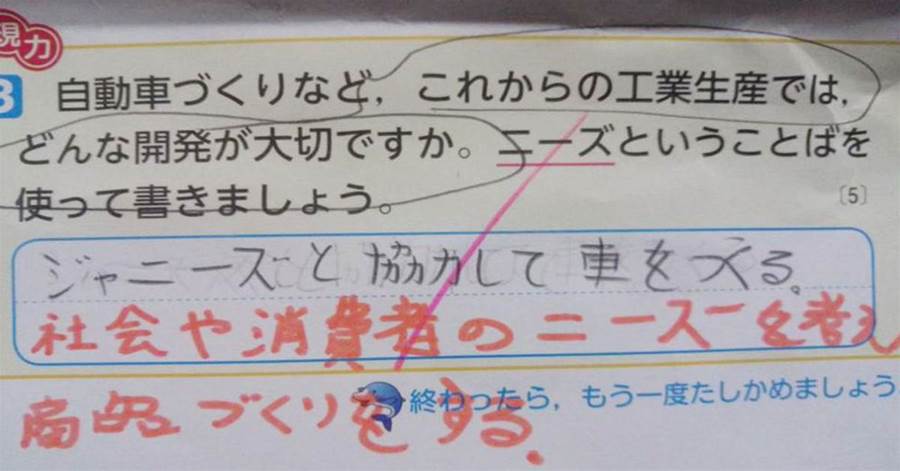 現力
3 自動車づくりなど，これからの工業生産では，
どんな開発が大切ですか。ニーズということばを
使って書きましょう。
〔5〕
ジャニーズと協力して車をづくる。
社会や消費者のニーズを考え
商品づくりをする.
終わったら，もう一度たしかめましょう